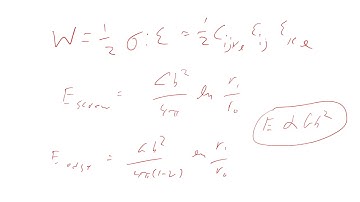 W = 1/2 σ:ε = 1/2 C_ijkl ε_ij ε_kl
E_screw = Gb²/4π ln r₁/r₀
E α Gb²
E_edge = Gb²/4π(1-ν) ln r₁/r₀